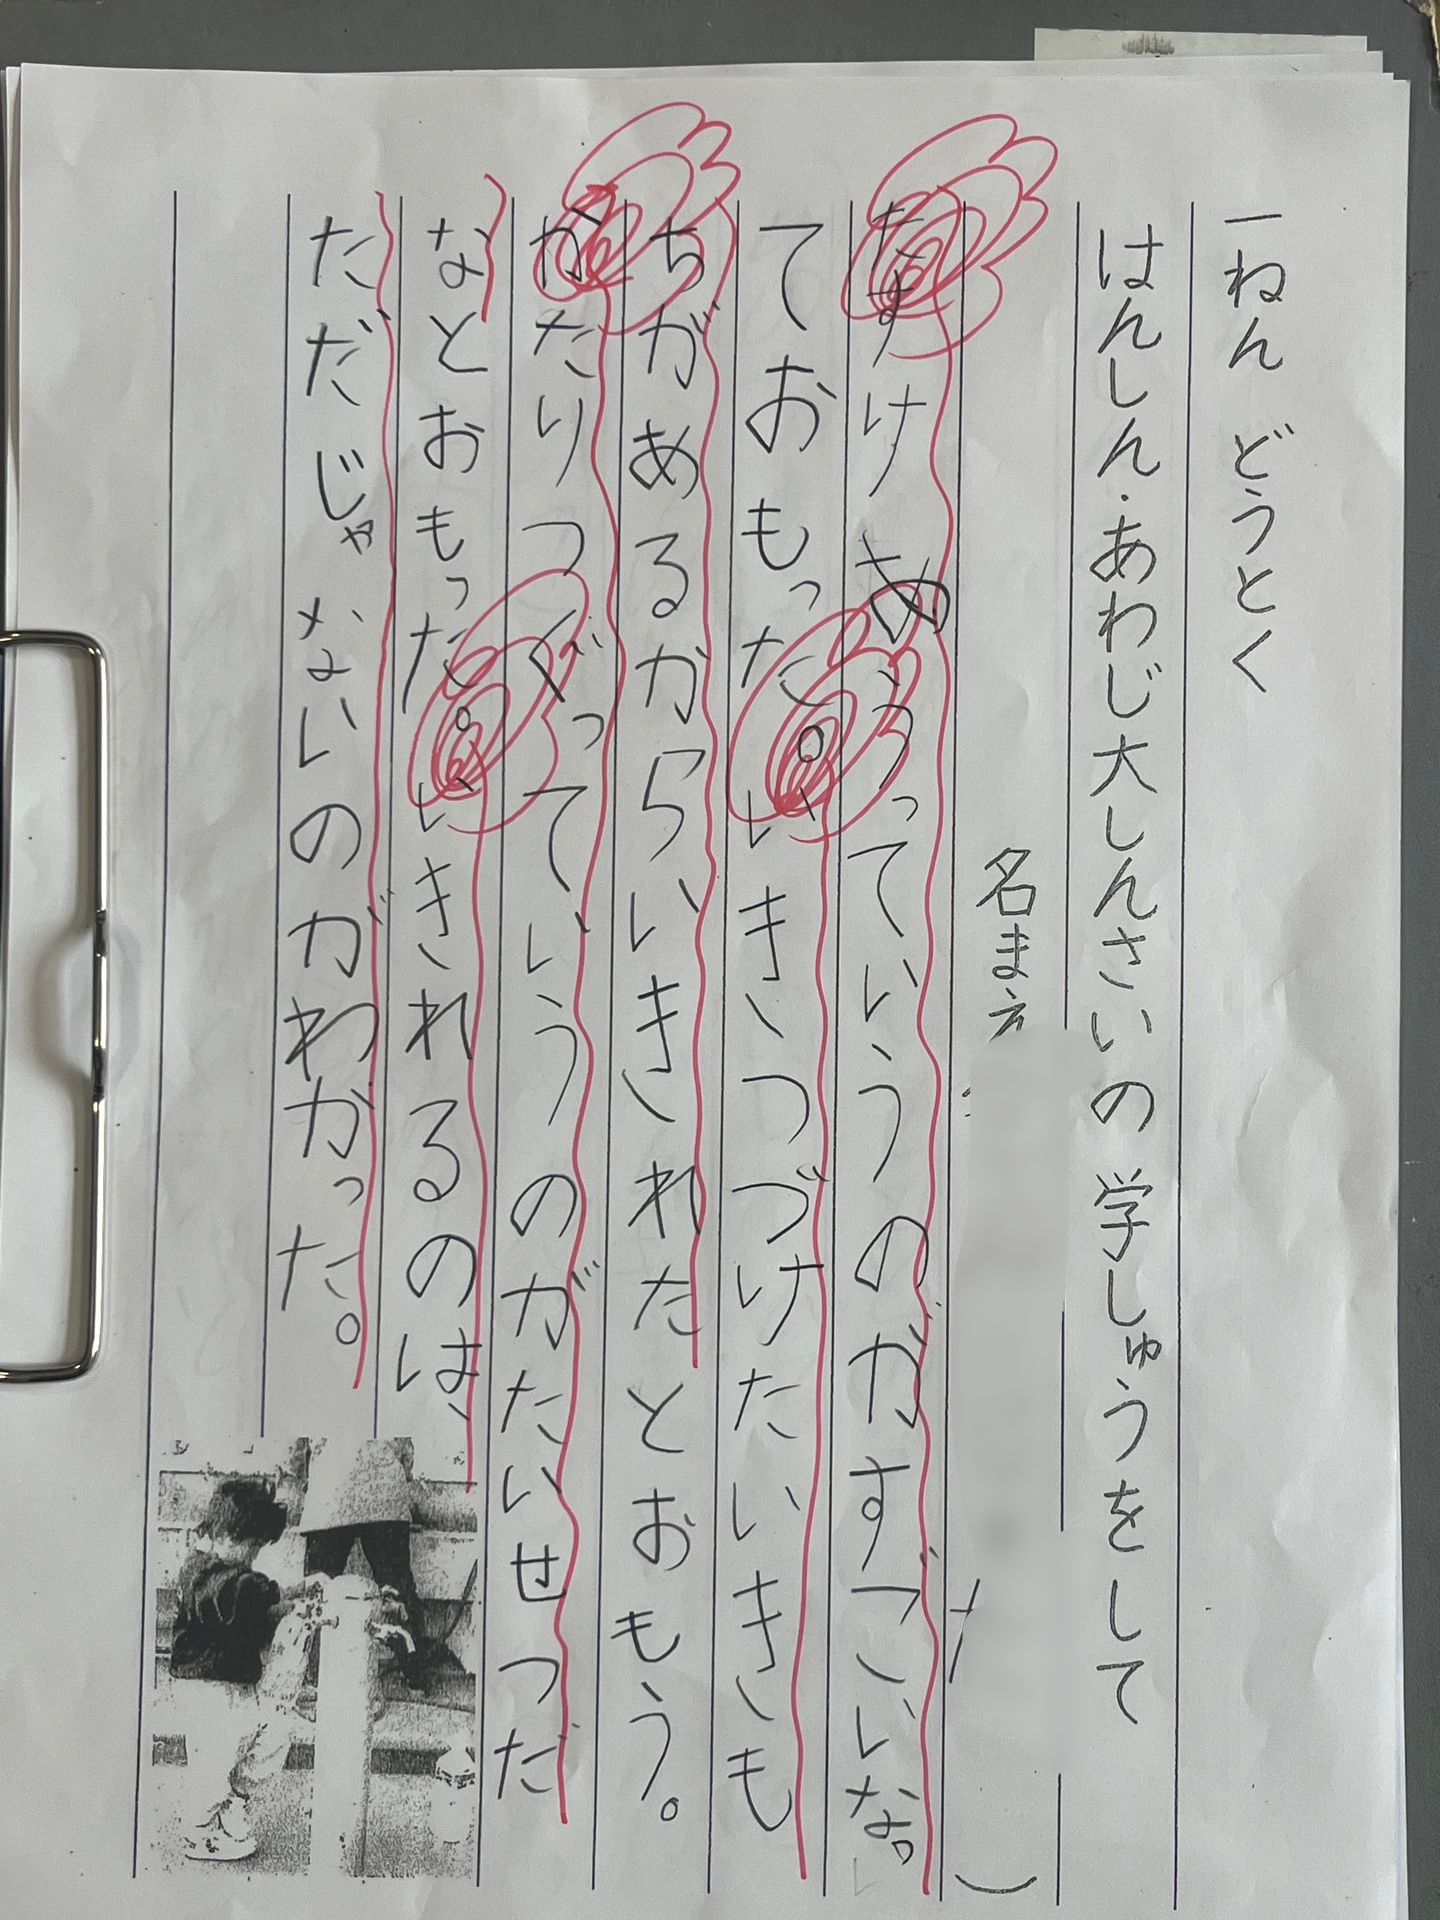 一ねん どうとく
はんしん・あわじ大しんさいの学しゅうをして
名まえ
たすけあうっていうのがすごいな。
ておもった。いきつづけたいきも
ちがあるからいきれたとおもう。
かたりつぐっていうのがたいせつだ
なとおもった。いきれるのは、
ただじゃないのがわかった。